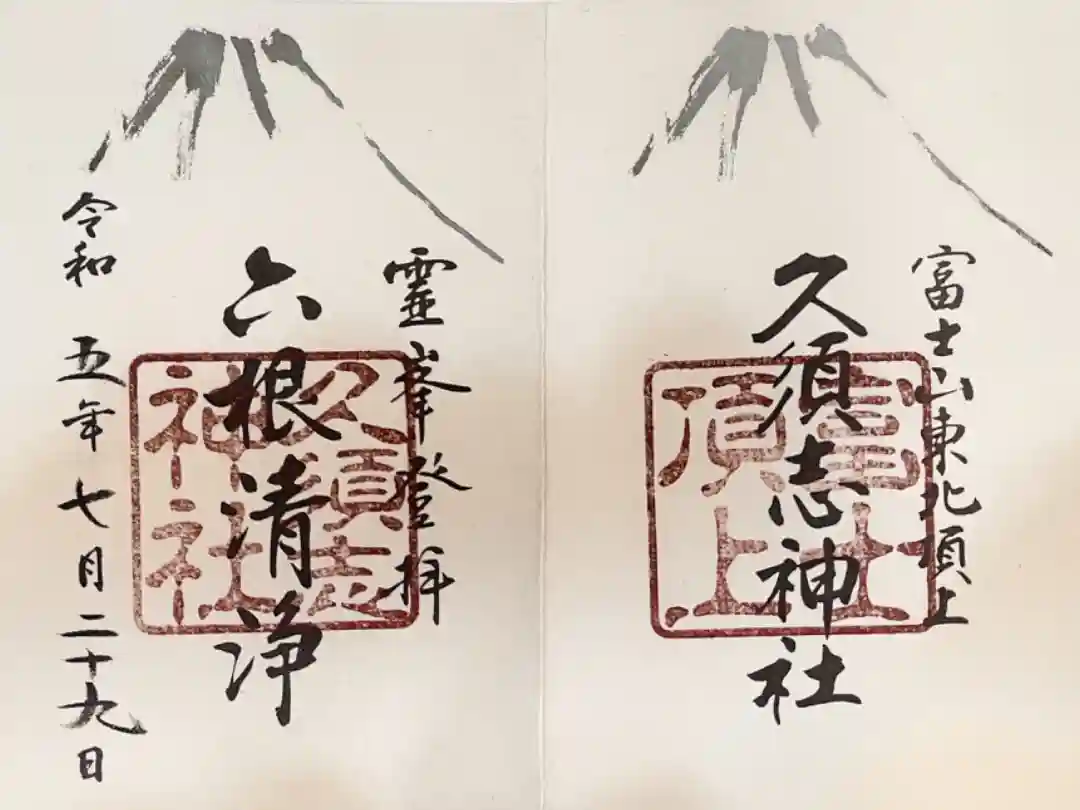 富士山東北頂上
久須志神社
富士
頂上
霊峯登拝
六根清浄
久須志
神社
令和 五年 七月二十九日